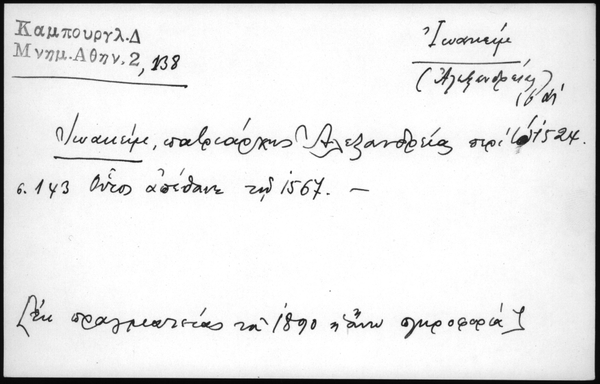 Καμπουργλ.Δ
Μνημ.Αθην.2, 138
Ἰωακείμ
(Ἀλεξανδρείας)
Ἰωακείμ, πατριάρχης Ἀλεξανδρείας περὶ τὸ 1524.
σ. 143 Οὗτος ἀπέθανε τῷ 1567. —
[Ἐκ πραγματείας τοῦ 1890 ἡ ἄνω πληροφορία]